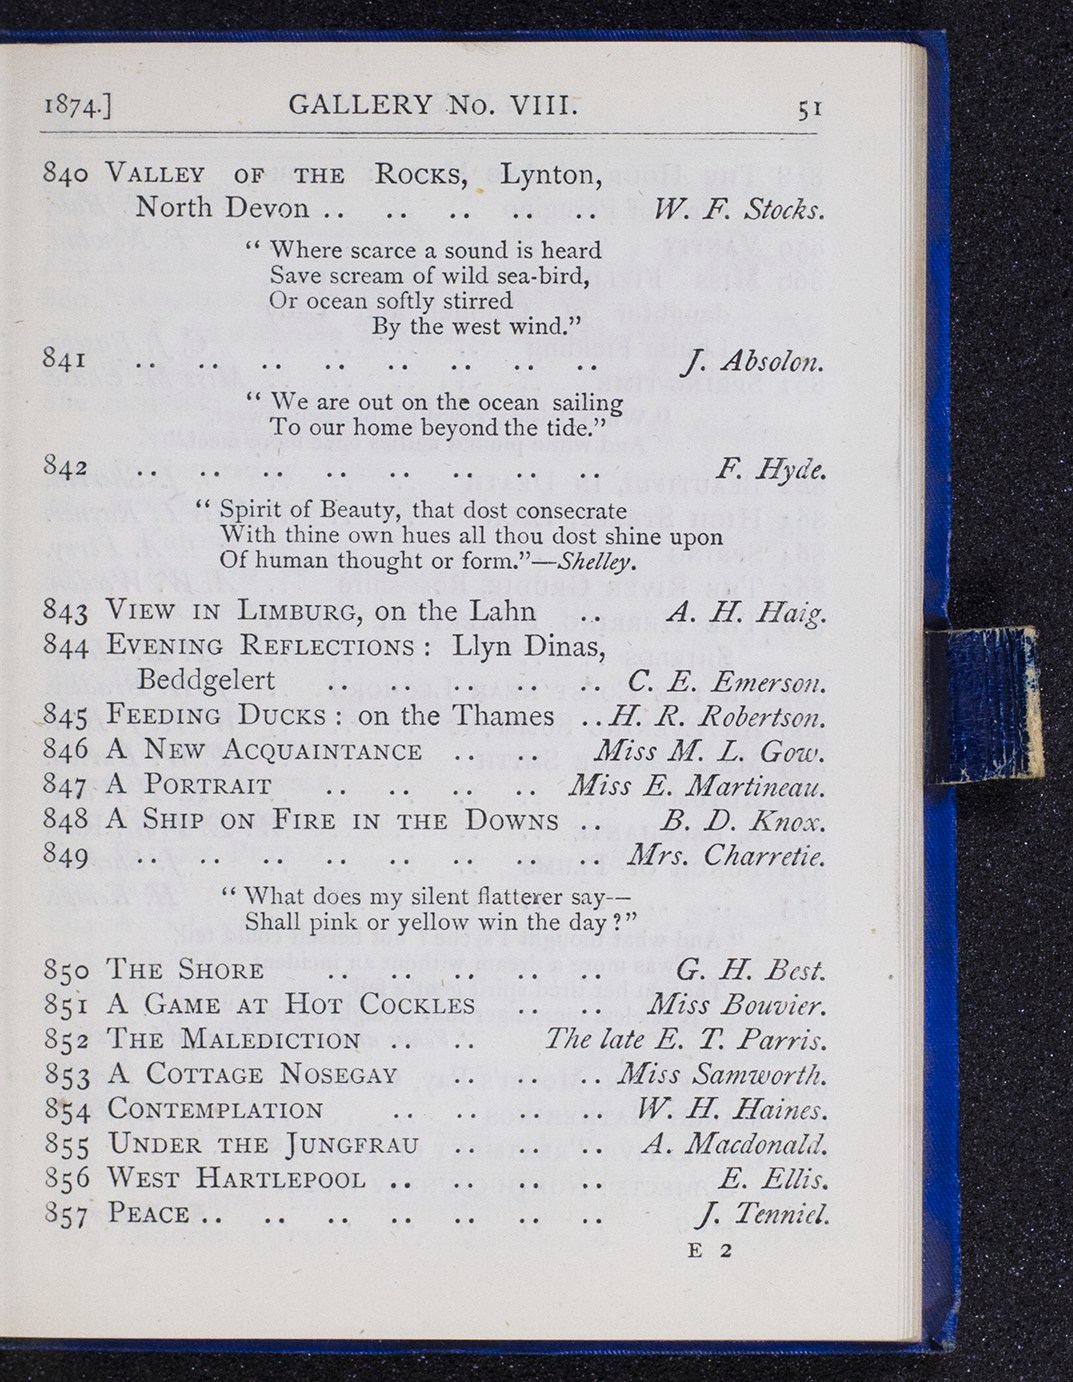 1874.] GALLERY No. VIII. 51
840 VALLEY OF THE ROCKS, Lynton,
North Devon .. .. .. .. .. W. F. Stocks.
“ Where scarce a sound is heard
Save scream of wild sea-bird,
Or ocean softly stirred
By the west wind.”
841 .. .. .. .. .. .. .. .. J. Absolon.
“ We are out on the ocean sailing
To our home beyond the tide.”
842 .. .. .. .. .. .. .. .. F. Hyde.
“ Spirit of Beauty, that dost consecrate
With thine own hues all thou dost shine upon
Of human thought or form.”—Shelley.
843 VIEW IN LIMBURG, on the Lahn .. A. H. Haig.
844 EVENING REFLECTIONS : Llyn Dinas,
Beddgelert .. .. .. .. .. C. E. Emerson.
845 FEEDING DUCKS : on the Thames .. H. R. Robertson.
846 A NEW ACQUAINTANCE .. .. Miss M. L. Gow.
847 A PORTRAIT .. .. .. .. Miss E. Martineau.
848 A SHIP ON FIRE IN THE DOWNS .. B. D. Knox.
849 .. .. .. .. .. .. .. .. Mrs. Charretie.
“ What does my silent flatterer say—
Shall pink or yellow win the day ?”
850 THE SHORE .. .. .. .. .. G. H. Best.
851 A GAME AT HOT COCKLES .. .. Miss Bouvier.
852 THE MALEDICTION .. .. The late E. T. Parris.
853 A COTTAGE NOSEGAY .. .. .. Miss Samworth.
854 CONTEMPLATION .. .. .. .. W. H. Haines.
855 UNDER THE JUNGFRAU .. .. .. A. Macdonald.
856 WEST HARTLEPOOL .. .. .. .. E. Ellis.
857 PEACE .. .. .. .. .. .. .. J. Tenniel.
E 2